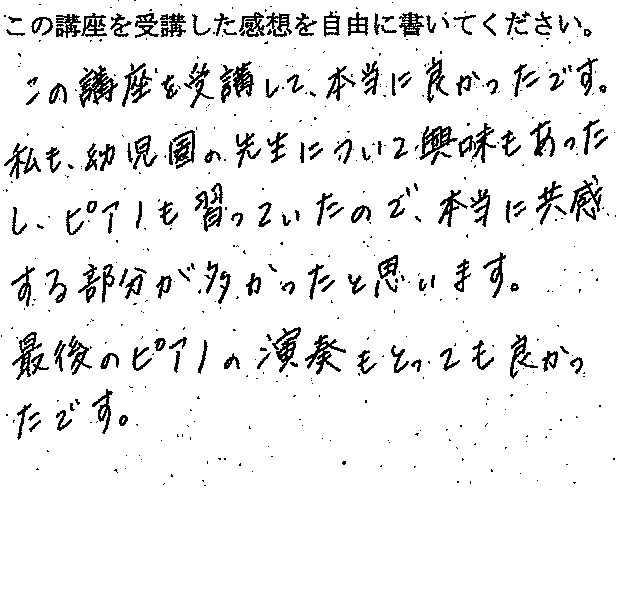 この講座を受講した感想を自由に書いてください。
この講座を受講して、本当に良かったです。
私も、幼児園の先生について興味もあった
し、ピアノも習っていたので、本当に共感
する部分が多かったと思います。
最後のピアノの演奏もとっても良かっ
たです。